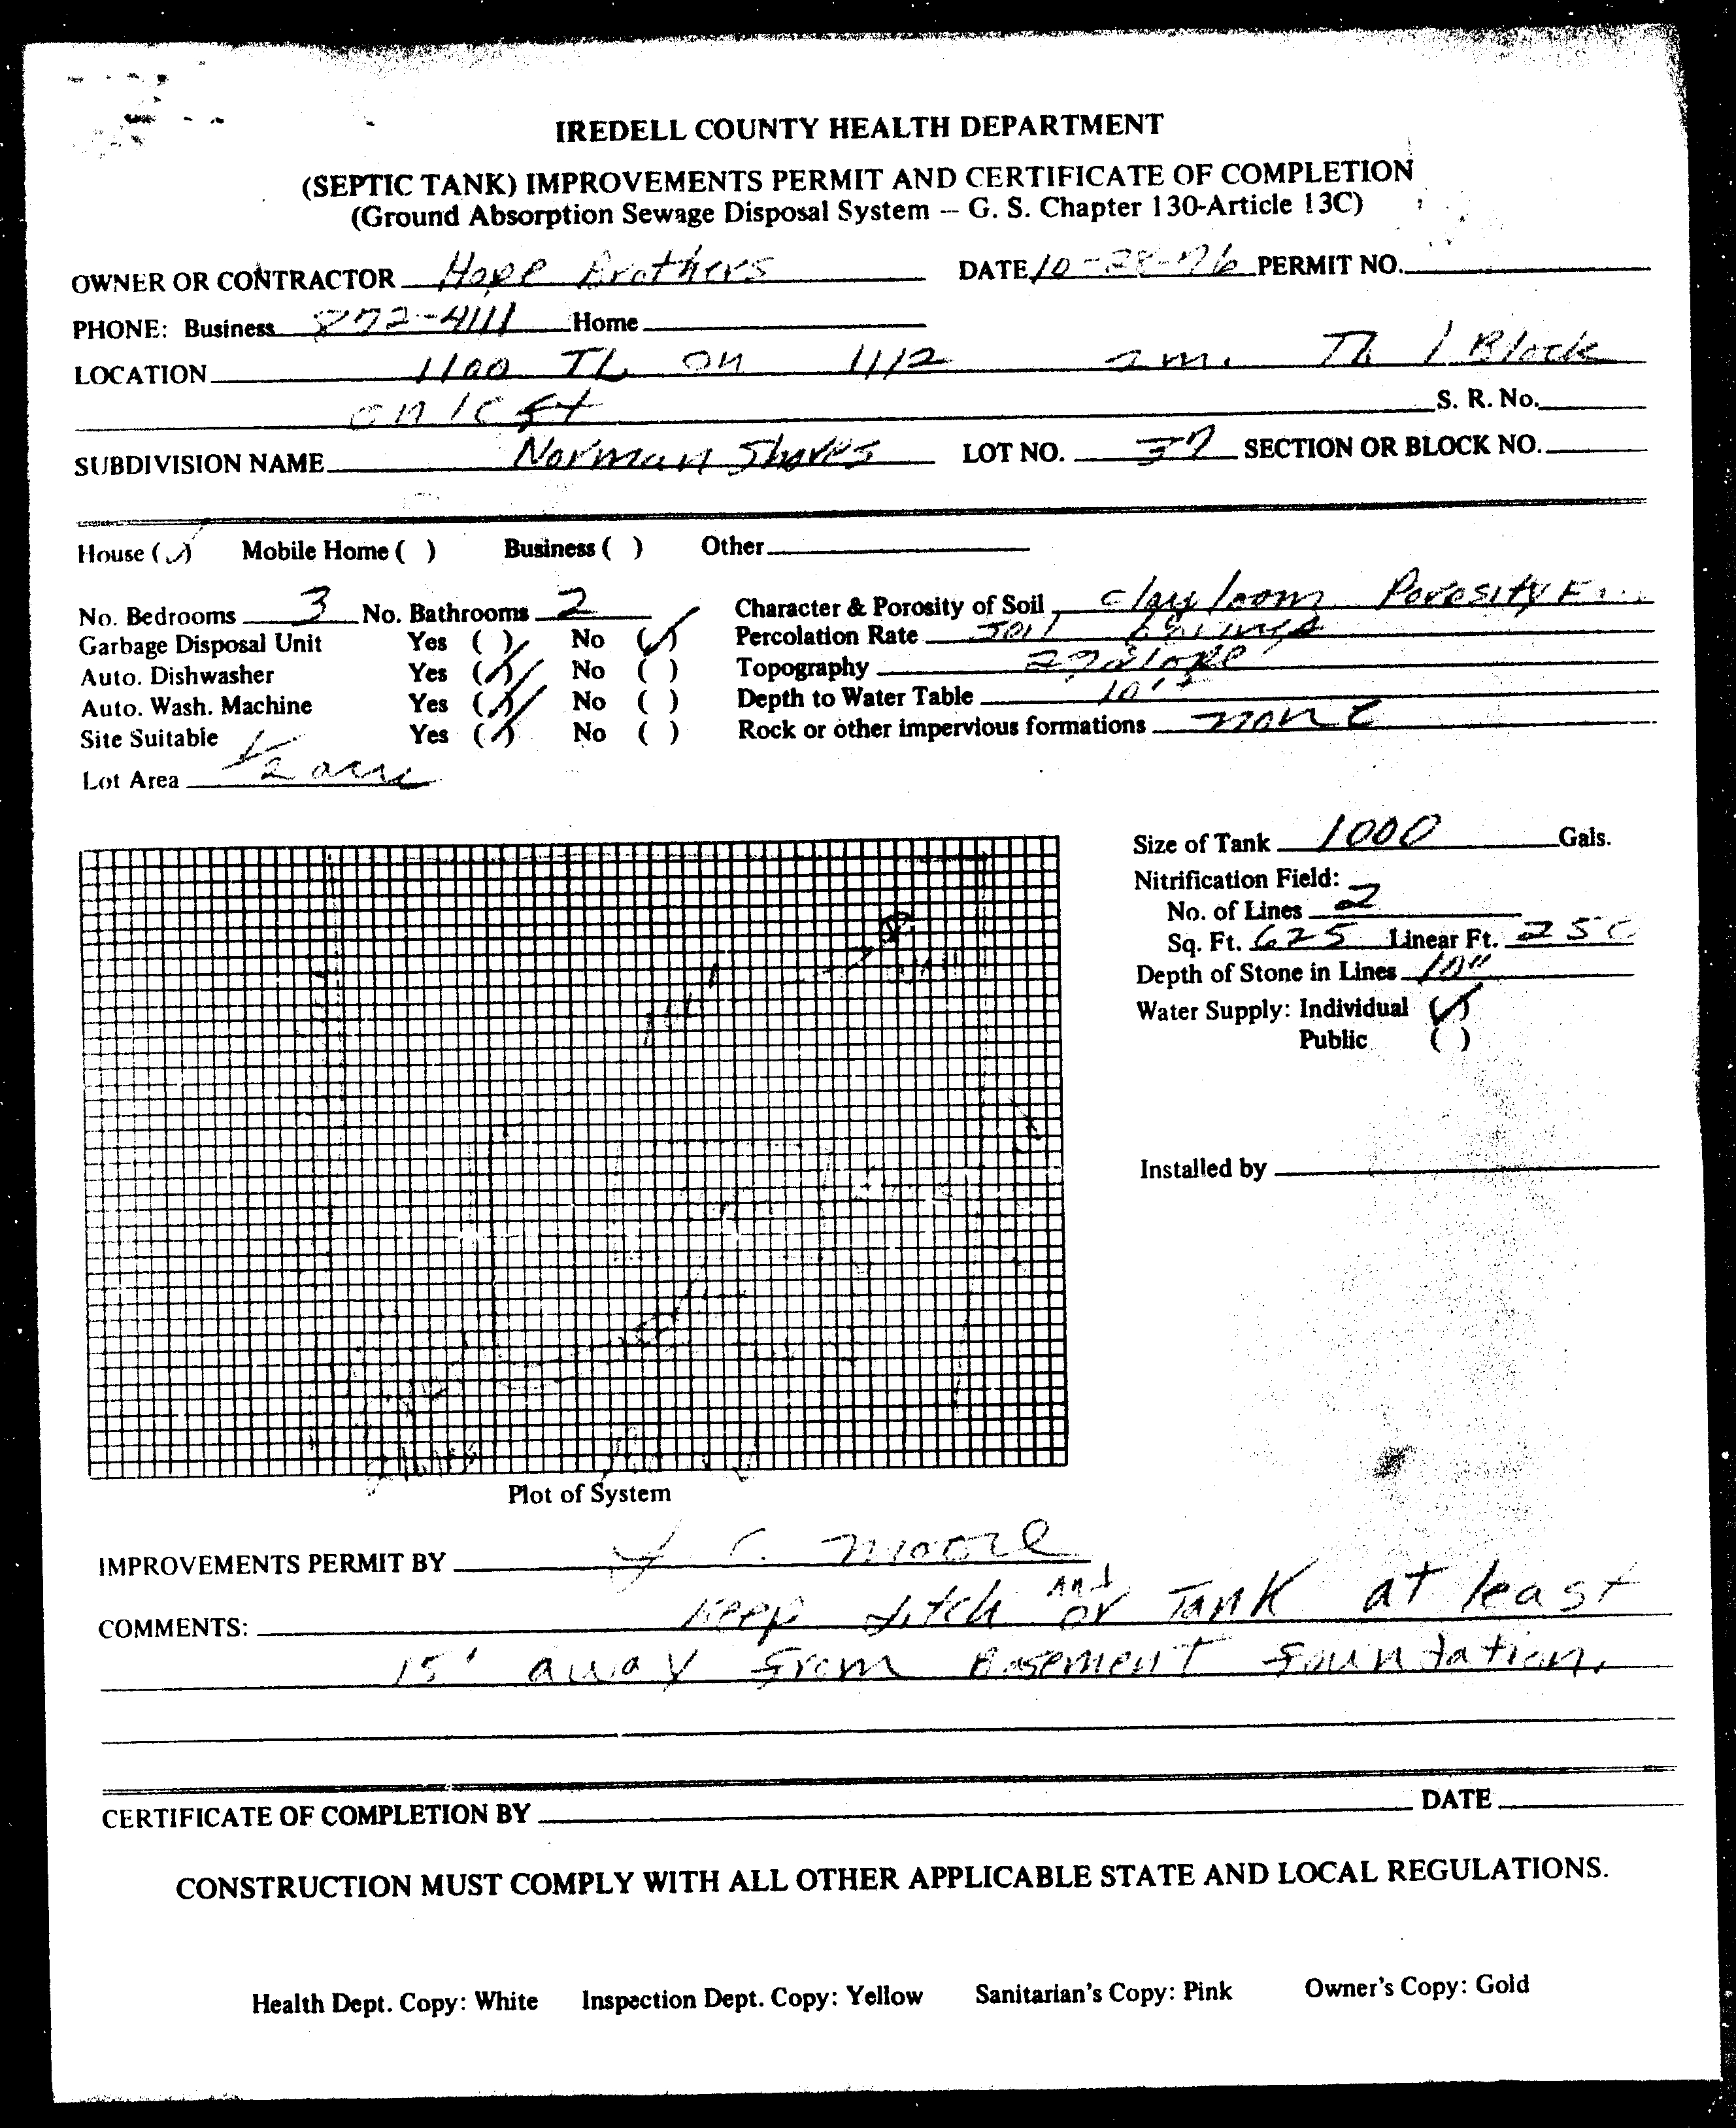 IREDELL COUNTY HEALTH DEPARTMENT
(SEPTIC TANK) IMPROVEMENTS PERMIT AND CERTIFICATE OF COMPLETION
(Ground Absorption Sewage Disposal System -- G. S. Chapter 130-Article 13C)
OWNER OR CONTRACTOR Hope Brothers DATE 10-28-76 PERMIT NO.
PHONE: Business 872-4111 Home
LOCATION 1100 TL on 1112 2 m. TL 1 Block
on left S. R. No.
SUBDIVISION NAME Norman Shores LOT NO. 37 SECTION OR BLOCK NO.
House (✓) Mobile Home ( ) Business ( ) Other
No. Bedrooms 3 No. Bathrooms 2 Character & Porosity of Soil clay loom Porosity
Garbage Disposal Unit Yes ( ) No (✓) Percolation Rate Soil
Auto. Dishwasher Yes (✓) No ( ) Topography slope
Auto. Wash. Machine Yes (✓) No ( ) Depth to Water Table 10'+
Site Suitable Yes (✓) No ( ) Rock or other impervious formations none
Lot Area 1/2 acre
Size of Tank 1000 Gals.
Nitrification Field:
No. of Lines 2
Sq. Ft. 625 Linear Ft. 250
Depth of Stone in Lines 10"
Water Supply: Individual (✓)
Public ( )
Installed by
Plot of System
IMPROVEMENTS PERMIT BY C. Moore
COMMENTS: Keep ditch and or Tank at least
15' away from Basement foundation.
CERTIFICATE OF COMPLETION BY DATE
CONSTRUCTION MUST COMPLY WITH ALL OTHER APPLICABLE STATE AND LOCAL REGULATIONS.
Health Dept. Copy: White Inspection Dept. Copy: Yellow Sanitarian's Copy: Pink Owner's Copy: Gold